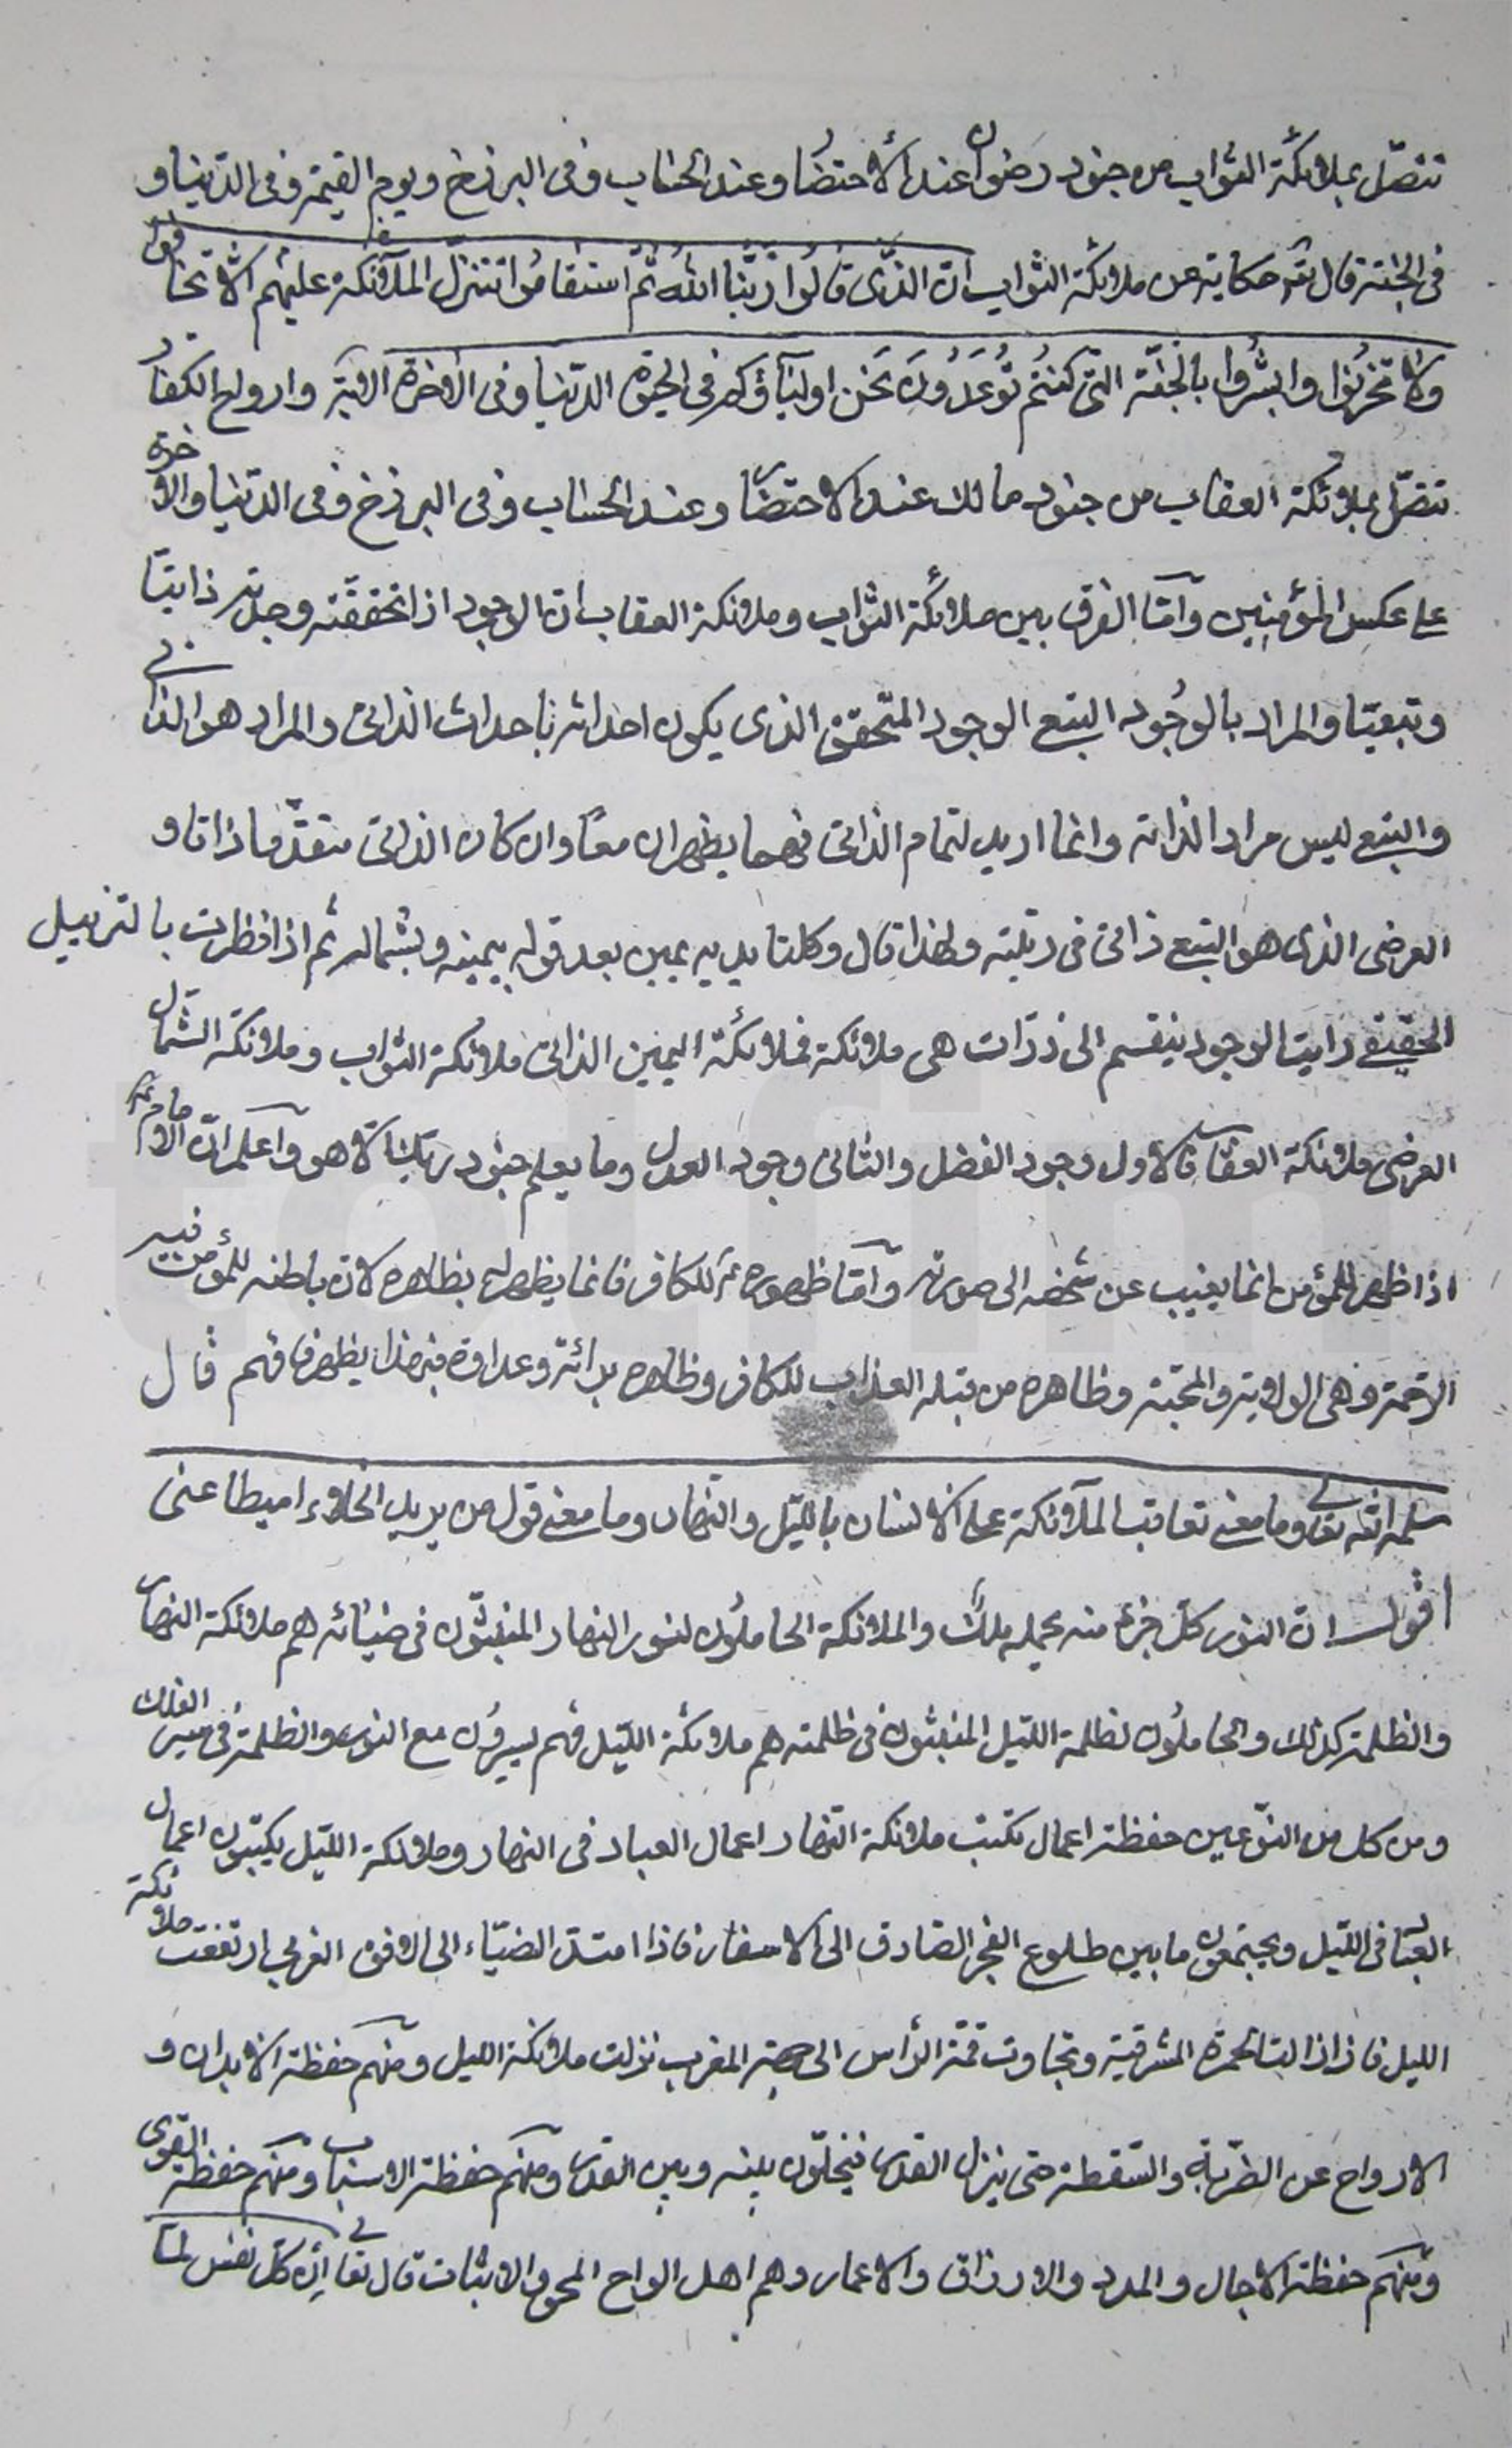 تتصل بملائكة الثواب من جنود رضوان عند الاحتضار وعند الحساب وفى البرزخ ويوم القيمة وفى الدنيا و
فى الجنة قال تعـ حكاية عن ملائكة الثواب ان الذين قالوا ربنا الله ثم استقاموا تتنزل الملآئكة عليهم الّا تخافوا
ولا تحزنوا وابشروا بالجنّة التى كنتم توعدون نحن اوليآؤكم فى الحيوة الدنيا وفى الاخرة الاية وارواح الكفار
تتصل بملائكة العقاب من جنود مالك عند الاحتضار وعند الحساب وفى البرزخ وفى الدنيا والاخرة
على عكس المؤمنين وامّا الفرق بين ملائكة الثواب وملائكة العقاب ان الوجود اذا تحققته وجدته ذاتيّا
وتبعيّا والمراد بالوجود التبع الوجود المتحقق الذى يكون احداثه باحداث الذاتى والمراد هو الذاتى
والتبع ليس مرادا لذاته وانما اريد لتمام الذاتى فهما يظهران معًا وان كان الذاتى متقدّما ذاتا و
العرضى الذى هو التبع ذاتى فى رتبته ولهذا قال وكلتا يديه يمين بعد قوله بيمينه وبشماله ثم اذا نظرت بالتزييل
الحقيقى رايت الوجود ينقسم الى ذرّات هى ملائكة فملائكة اليمين الذاتى ملائكة الثواب وملائكة الشمال
العرضى ملائكة العقاب فالاول وجود الفضل والثانى وجود العدل وما يعلم جنود ربك الّا هو واعلم انّ الامام عـ
اذا ظهر للمؤمن انما يغيب عن شخصه الى صورته وامّا ظهوره عـ للكافر فانما يظهر له بظاهره لان باطنه للمؤمن فيه
الرحمة وهى الولاية والمحبّة وظاهره من قبله العذاب للكافر وظاهره برائة وعداوة فبهذا يظهر فافهم قال
سلمه الله تعالى وما معنى تعاقب الملآئكة على الانسان بالليل والنهار وما معنى قول من يريد الخلاء اميطا عنى
اقول ان النور كلّ جزء منه يحمله ملك والملائكة الحاملون لنور النهار المنبثّون فى ضيائه هم ملائكة النهار
والظلمة كذلك والحاملون لظلمة الليل المنبثون فى ظلمته هم ملائكة الليل فهم يسيرون مع النور والظلمة فى سير الفلك
ومن كل من النوعين حفظة اعمال تكتب ملائكة النهار اعمال العباد فى النهار وملائكة الليل يكتبون اعمال
العباد فى الليل ويجتمعون ما بين طلوع الفجر الصادق الى الاسفار فاذا امتدّ الضياء الى الافق الغربى ارتفعت ملائكة
الليل فاذا زالت الحمرة المشرقية وتجاوزت قمّة الرأس الى جهة المغرب نزلت ملائكة الليل ومنهم حفظة الابدان و
الارواح عن الضربة والسقطة حتى ينزل القدر فيخلّون بينه وبين القدر ومنهم حفظة الاسباب ومنهم حفظة القوى
ومنهم حفظة الاجال والمدد والارزاق والاعمار وهم اهل الواح المحو والاثبات قال تعالى ان كلّ نفس لمّا